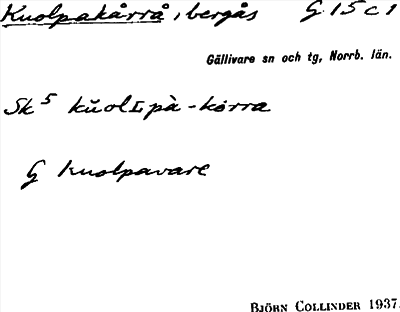 Kuolpakårrå, bergås G 15 c 1
Gällivare sn och tg, Norrb. län.
Sk⁵ kŭolɪpà-kårra
G Kuolpavare
BJÖRN COLLINDER 1937.